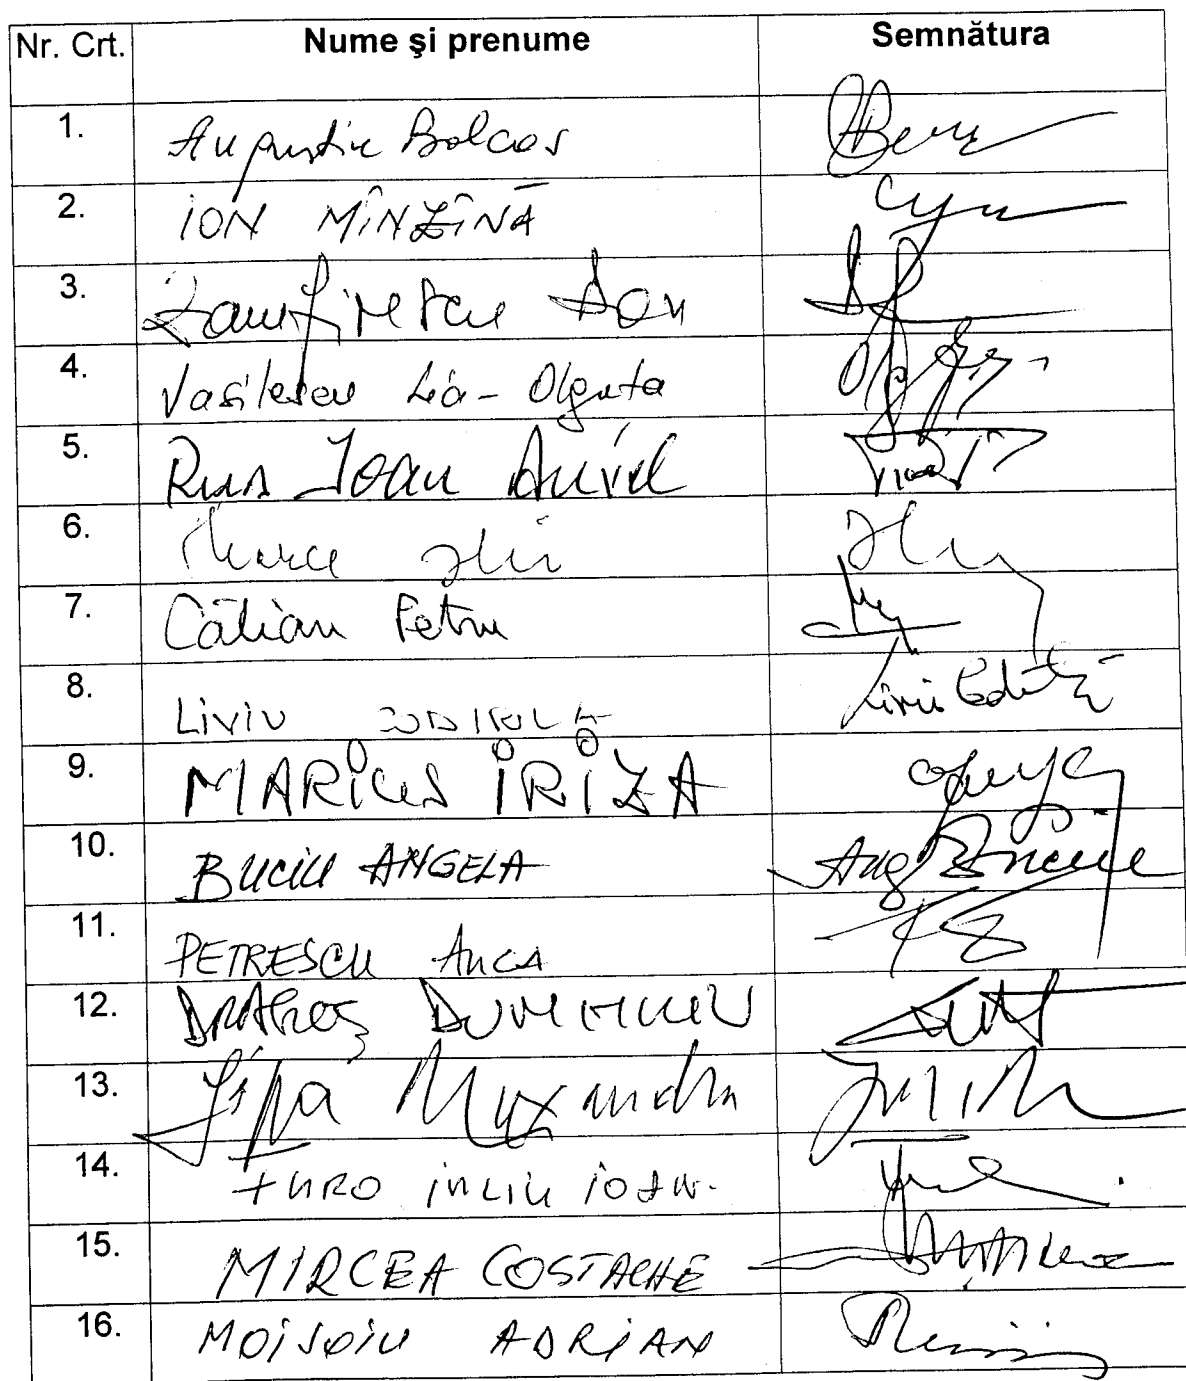 Nr. Crt. Nume şi prenume Semnătura
1. Augustin Bolcaş
2. ION MÎNZÎNĂ
3. Zamfirescu Dan
4. Vasilescu Lia-Olguta
5. Rus Ioan Aurel
6. Merce Ilie
7. Călian Petru
8. LIVIU CODIRLĂ
9. MARIUS IRIZA
10. BUCIU ANGELA Ang Buciu
11. PETRESCU Anca
12. DRAGOŞ DUMITRIU
13. Lipa Ruxandra
14. FURO IULIU IOAN.
15. MIRCEA COSTACHE
16. MOISOIU ADRIAN